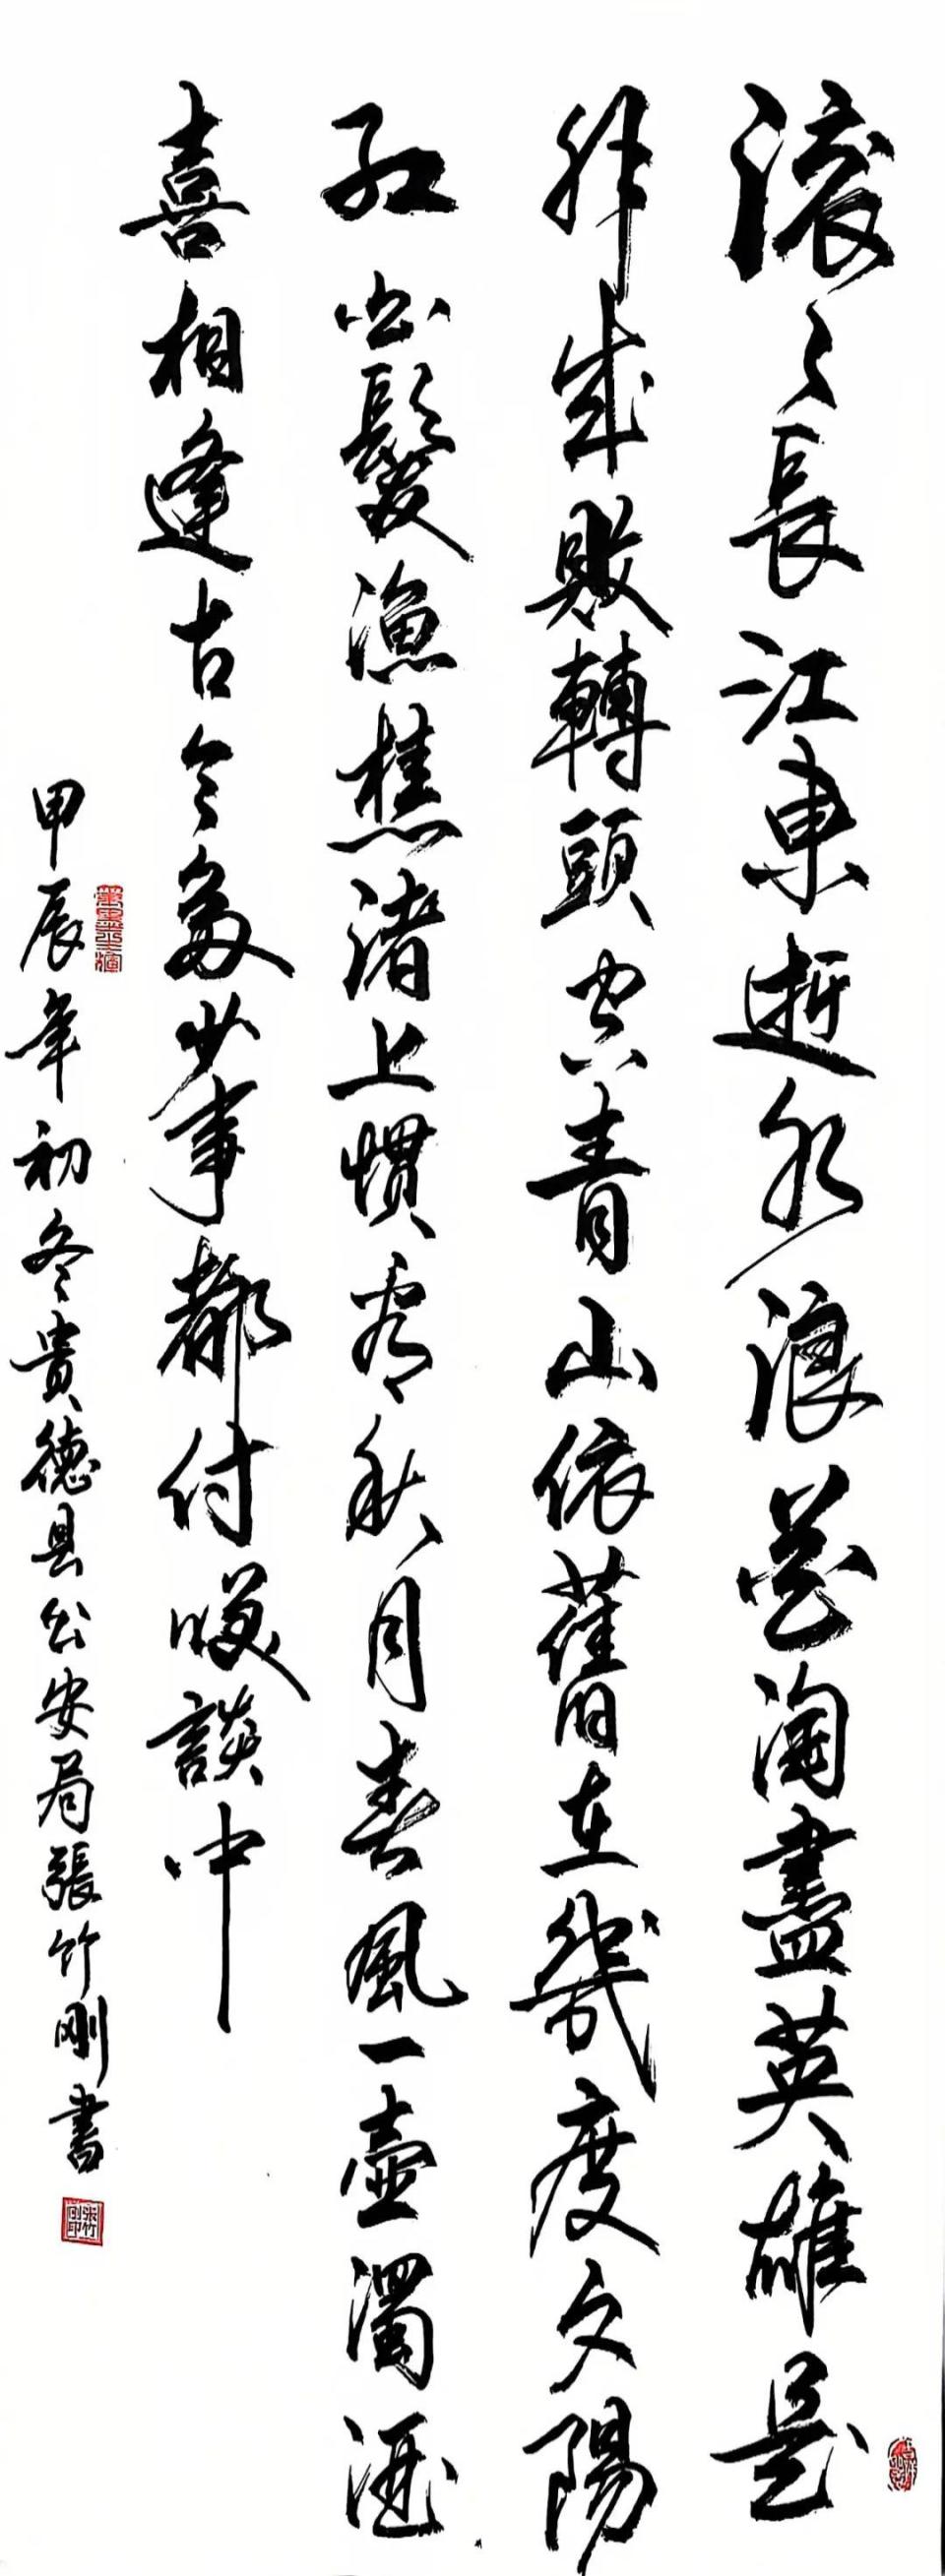 滚〻長江東逝水浪花淘盡英雄是
非成敗轉頭空青山依舊在幾度夕陽
紅白髮漁樵渚上慣看秋月春風一壺濁酒
喜相逢古今多少事都付笑談中
甲辰年初冬貴德县公安局張竹刚書
張竹刚印